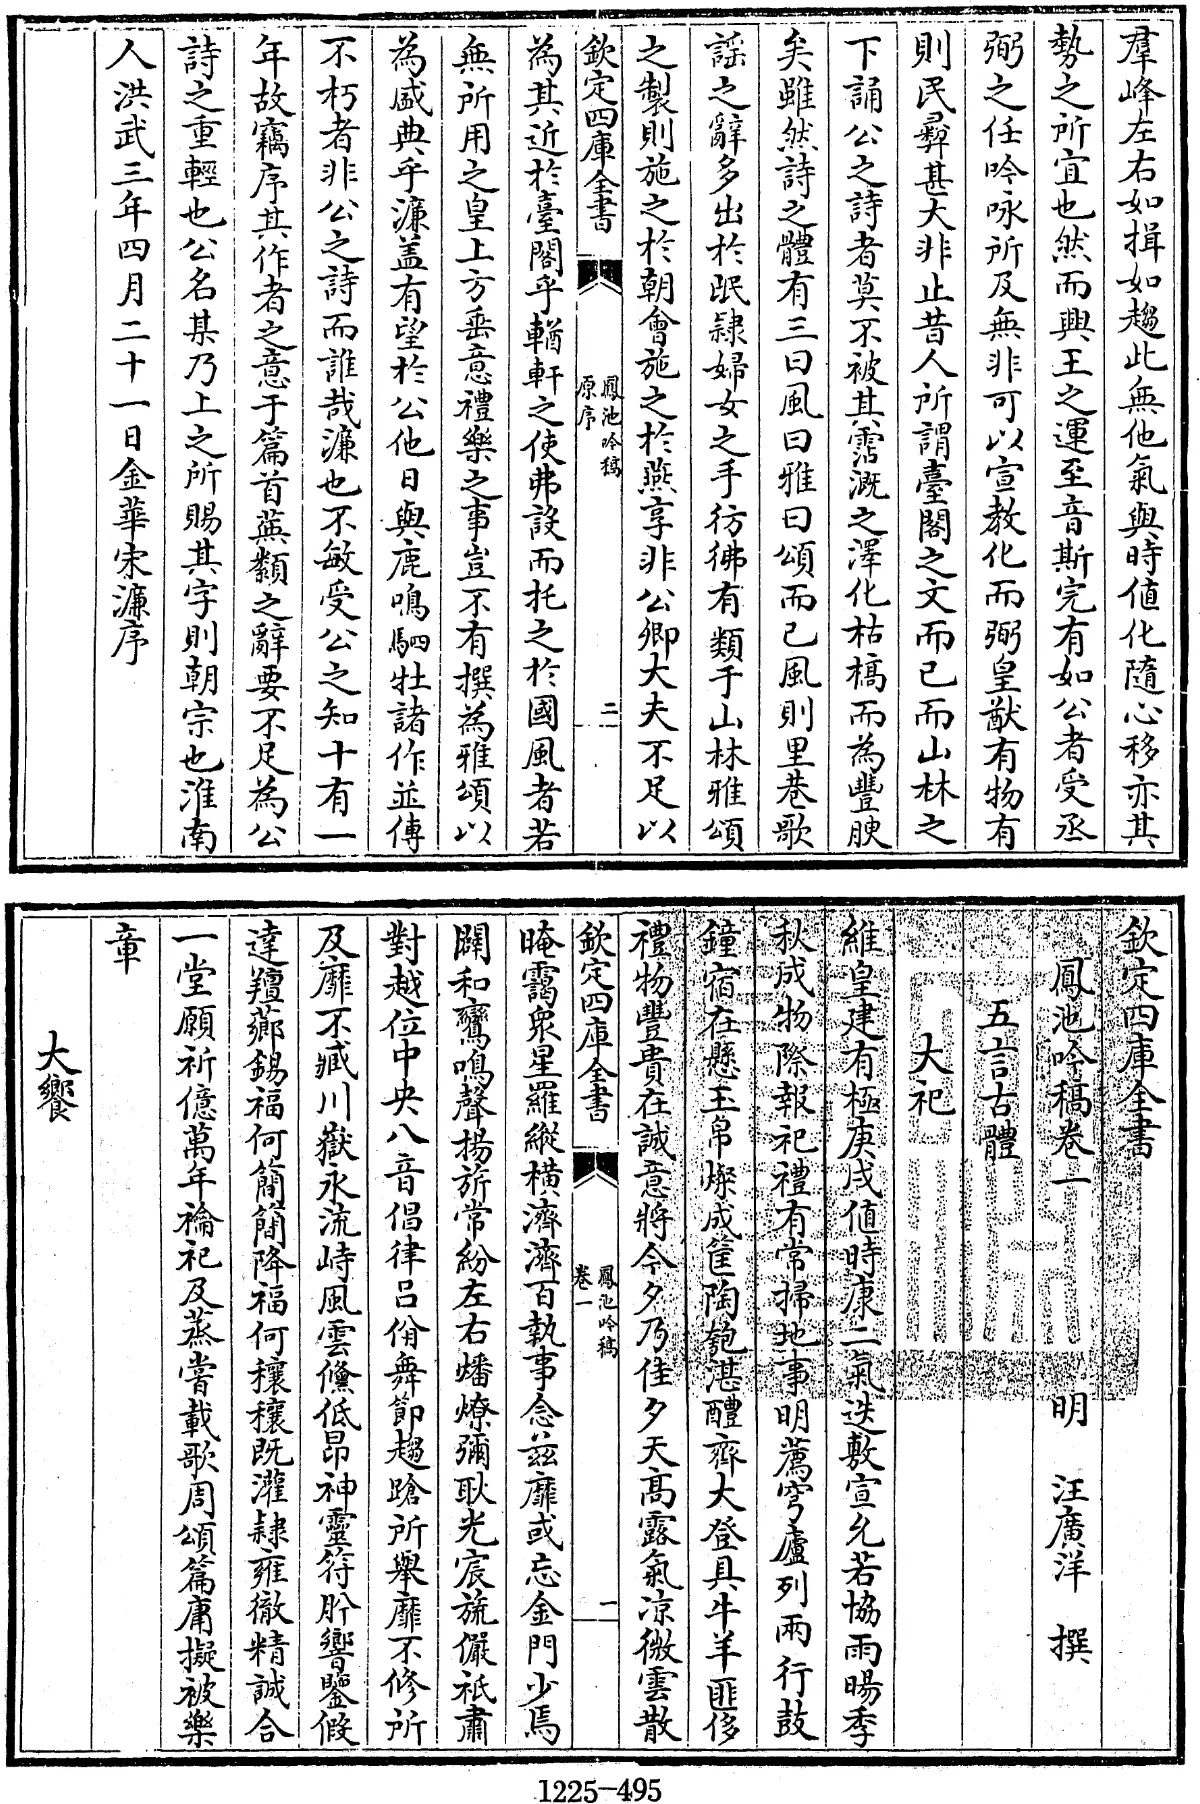 羣峰左右如揖如趨此無他氣與時值化隨心移亦其
勢之所宜也然而興王之運至音斯完有如公者受丞
弼之任吟咏所及無非可以宣教化而弼皇猷有物有
則民彞甚大非止昔人所謂臺閣之文而已而山林之
下誦公之詩者莫不被其霑溉之澤化枯槁而為豐腴
矣雖然詩之體有三曰風曰雅曰頌而已風則里巷歌
謡之辭多出於氓隷婦女之手彷彿有類于山林雅頌
之製則施之於朝會施之於燕享非公卿大夫不足以
欽定四庫全書
鳳池吟稿
原序
二
為其近於臺閣乎輶軒之使弗設而托之於國風者若
無所用之皇上方垂意禮樂之事豈不有撰為雅頌以
為盛典乎濂盖有望於公他日與鹿鳴駟牡諸作並傳
不朽者非公之詩而誰哉濂也不敏受公之知十有一
年故竊序其作者之意于篇首蕪纇之辭要不足為公
詩之重輕也公名某乃上之所賜其字則朝宗也淮南
人洪武三年四月二十一日金華宋濂序
欽定四庫全書
鳳池吟稿卷一 明 汪廣洋 撰
五言古體
大祀
維皇建有極庚戌值時康二氣迭敷宣允若協雨暘季
秋成物際報祀禮有常掃地事明薦穹廬列兩行鼓
鐘宿在懸玉帛燦成筐陶匏湛醴齊大登具牛羊匪侈
禮物豐貴在誠意將今夕乃佳夕天高露氣凉微雲散
欽定四庫全書
鳳池吟稿
卷一
一
晻靄衆星羅縱横濟濟百執事念兹靡或忘金門少焉
闢和鸞鳴聲揚旂常紛左右燔燎彌耿光宸旒儼祗肅
對越位中央八音倡律呂佾舞節趨蹌所舉靡不修所
及靡不臧川嶽永流峙風雲儵低昂神靈符肸響鑒假
達羶薌錫福何簡簡降福何穰穰既灌隷雍徹精誠合
一堂願祈億萬年禴祀及蒸嘗載歌周頌篇庸擬被樂
章
大饗
1225-495